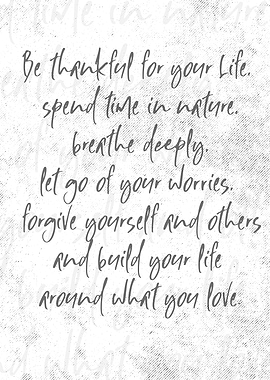 Be thankful for your Life.
spend time in nature.
breathe deeply.
let go of your worries.
forgive yourself and others
and build your life
around what you love.